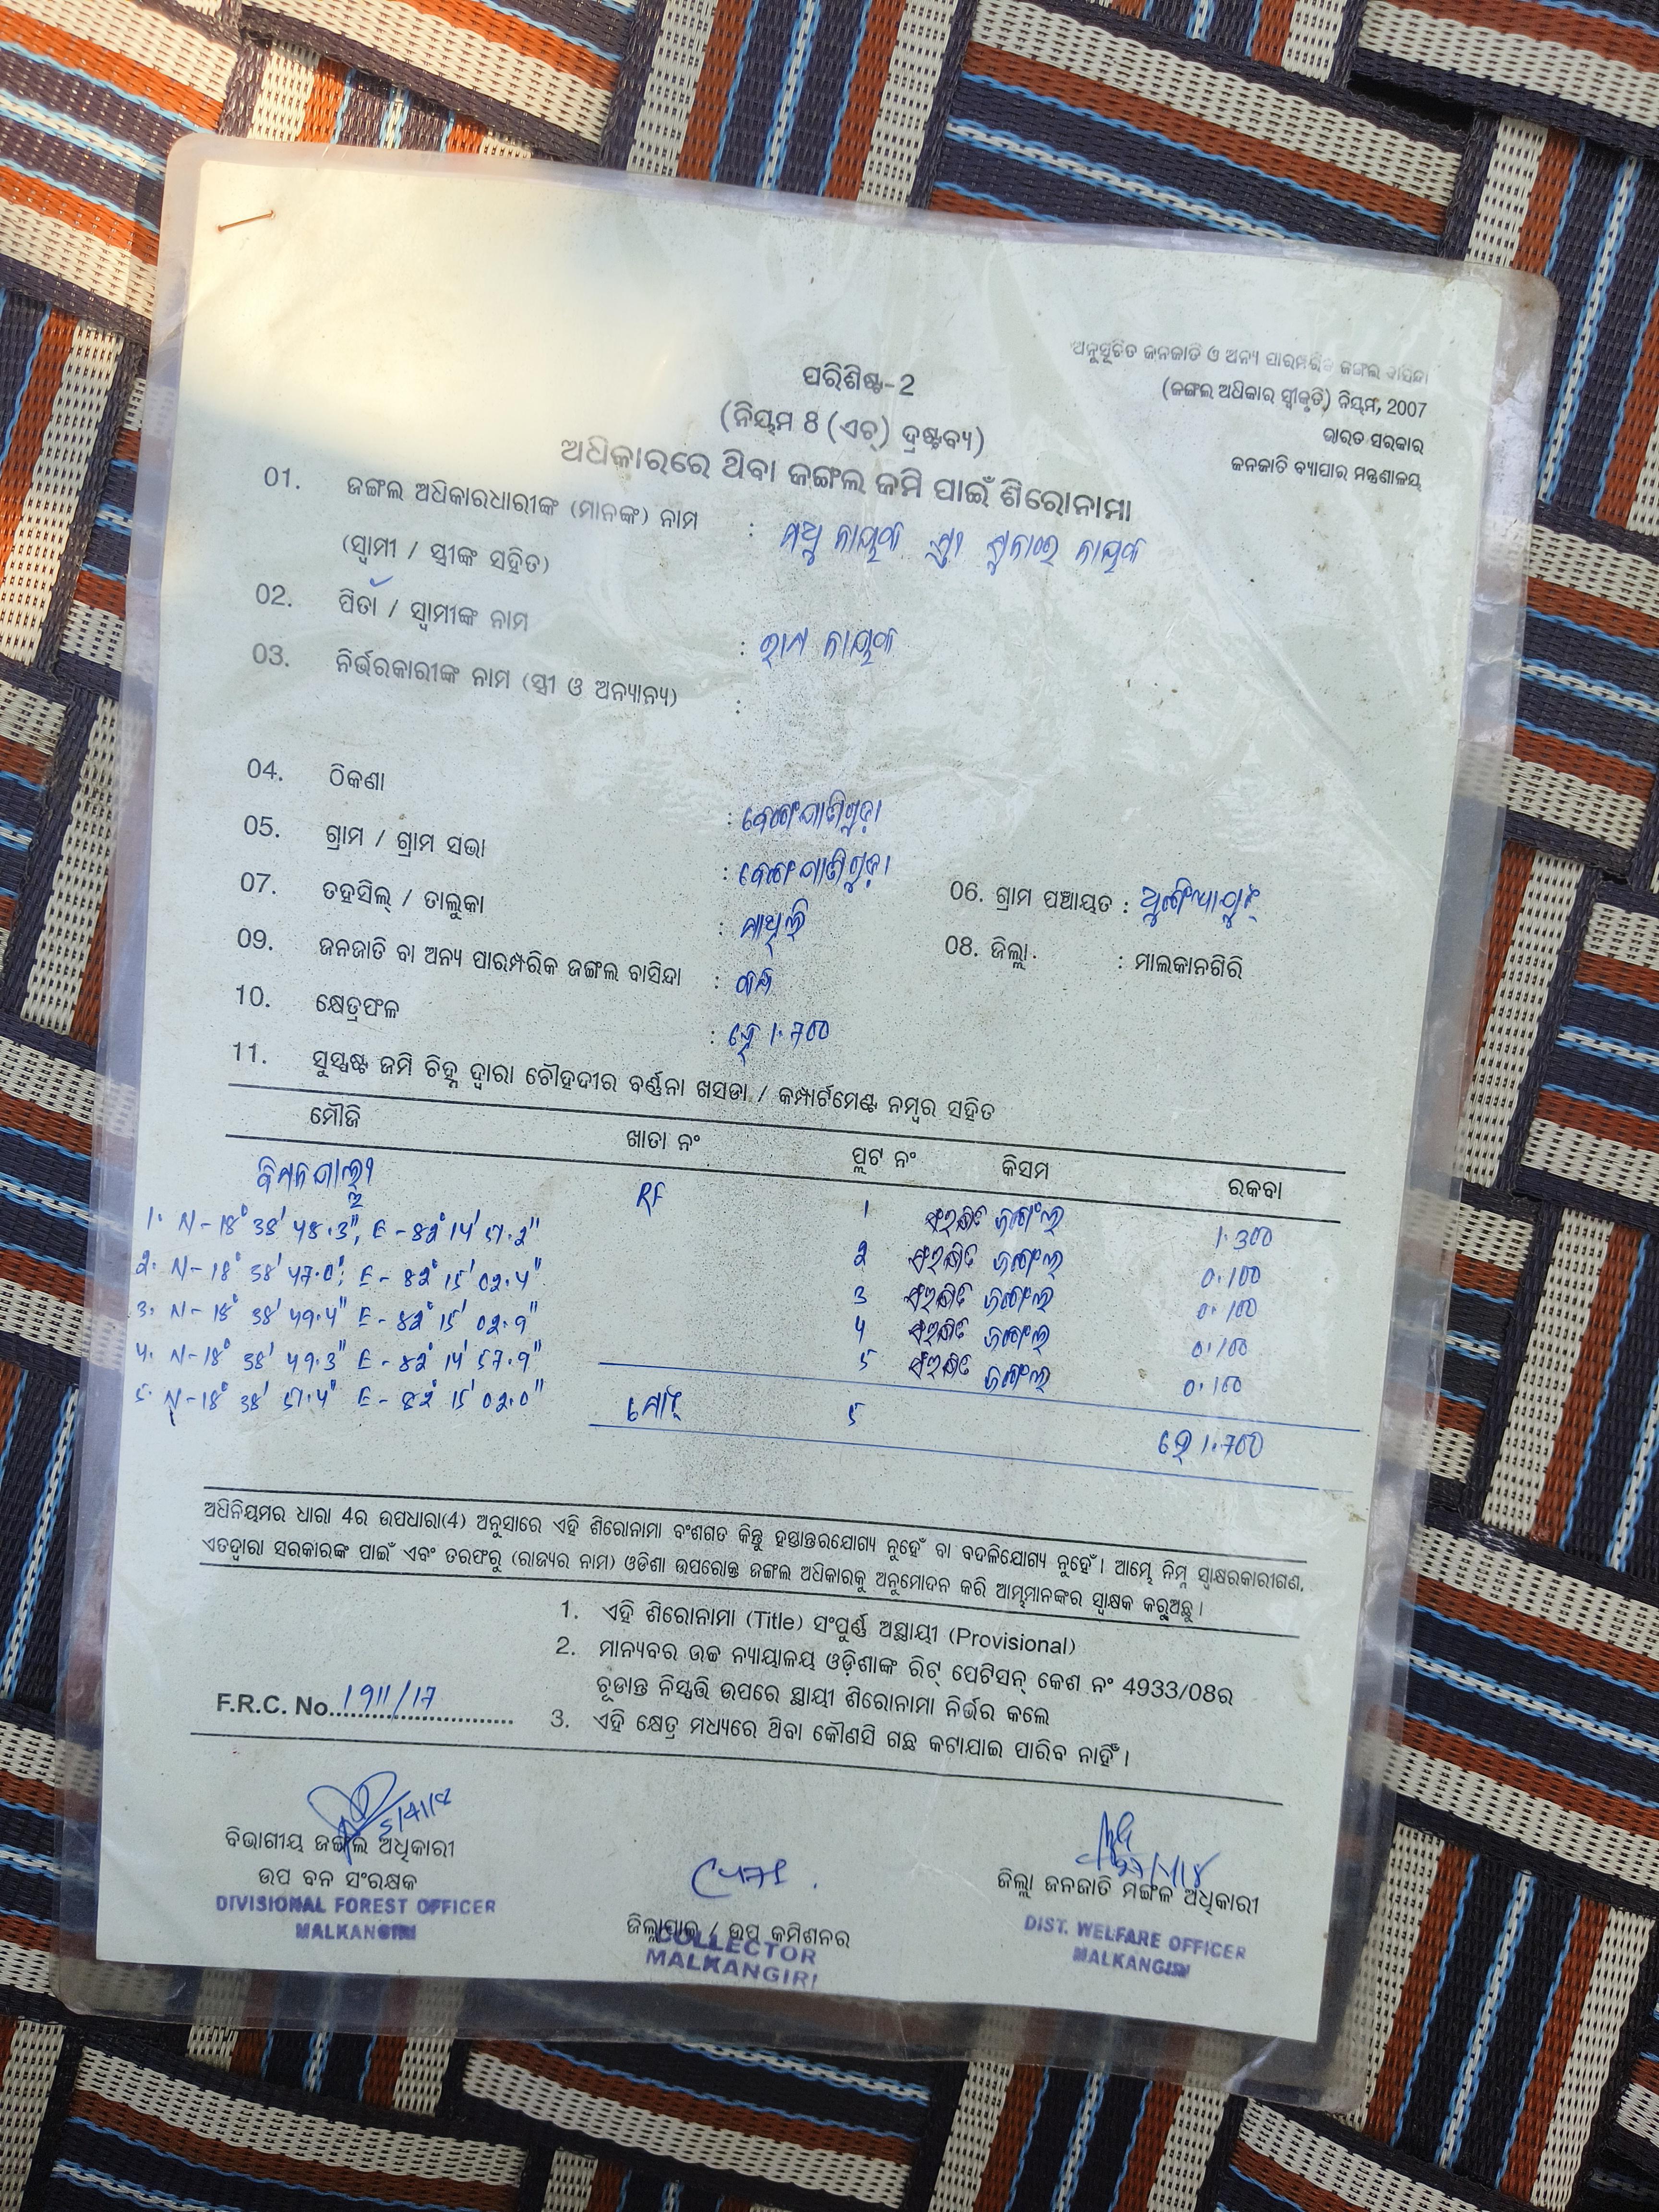 ଅନୁସୂଚିତ ଜନଜାତି ଓ ଅନ୍ୟ ପାରମ୍ପରିକ ଜଙ୍ଗଲ ବାସିନ୍ଦା
(ଜଙ୍ଗଲ ଅଧିକାର ସ୍ୱୀକୃତି) ନିୟମ, 2007
ଭାରତ ସରକାର
ଜନଜାତି ବ୍ୟାପାର ମନ୍ତ୍ରଣାଳୟ
ପରିଶିଷ୍ଟ-2
(ନିୟମ 8 (ଏଚ୍) ଦ୍ରଷ୍ଟବ୍ୟ)
ଅଧିକାରରେ ଥିବା ଜଙ୍ଗଲ ଜମି ପାଇଁ ଶିରୋନାମା
01. ଜଙ୍ଗଲ ଅଧିକାରଧାରୀଙ୍କ (ମାନଙ୍କ) ନାମ : ମଧୁ ନାୟକ ସ୍ତ୍ରୀ ଶୁକ୍ରାଇ ନାୟକ
(ସ୍ୱାମୀ / ସ୍ତ୍ରୀଙ୍କ ସହିତ)
02. ପିତା / ସ୍ୱାମୀଙ୍କ ନାମ : ରାମ ନାୟକ
03. ନିର୍ଭରକାରୀଙ୍କ ନାମ (ସ୍ତ୍ରୀ ଓ ଅନ୍ୟାନ୍ୟ) :
04. ଠିକଣା :
05. ଗ୍ରାମ / ଗ୍ରାମ ସଭା :
06. ଗ୍ରାମ ପଞ୍ଚାୟତ :
07. ତହସିଲ୍ / ତାଲୁକା : ମାଥିଲି
08. ଜିଲ୍ଲା : ମାଲକାନଗିରି
09. ଜନଜାତି ବା ଅନ୍ୟ ପାରମ୍ପରିକ ଜଙ୍ଗଲ ବାସିନ୍ଦା :
10. କ୍ଷେତ୍ରଫଳ : ହେ 1.700
11. ସୁସ୍ପଷ୍ଟ ଜମି ଚିହ୍ନ ଦ୍ୱାରା ଚୌହଦୀର ବର୍ଣ୍ଣନା ଖସଡା / କମ୍ପାର୍ଟମେଣ୍ଟ ନମ୍ବର ସହିତ
ମୌଜି ଖାତା ନଂ ପ୍ଲଟ ନଂ କିସମ ରକବା
RF 1 ସଂରକ୍ଷିତ ଜଙ୍ଗଲ 1.300
1. N-18° 38' 48.3", E-82° 14' 51.2"
2 ସଂରକ୍ଷିତ ଜଙ୍ଗଲ 0.100
2. N-18° 38' 47.0", E-82° 15' 02.4"
3 ସଂରକ୍ଷିତ ଜଙ୍ଗଲ 0.100
3. N-18° 38' 49.4" E-82° 15' 02.9"
4 ସଂରକ୍ଷିତ ଜଙ୍ଗଲ 0.100
4. N-18° 38' 49.3" E-82° 14' 57.9"
5 ସଂରକ୍ଷିତ ଜଙ୍ଗଲ 0.100
5. N-18° 38' 51.4" E-82° 15' 02.0"
ମୋଟ୍ 5 ହେ 1.700
ଅଧିନିୟମର ଧାରା 4ର ଉପଧାରା(4) ଅନୁସାରେ ଏହି ଶିରୋନାମା ବଂଶଗତ କିନ୍ତୁ ହସ୍ତାନ୍ତରଯୋଗ୍ୟ ନୁହେଁ ବା ବଦଳିଯୋଗ୍ୟ ନୁହେଁ। ଆମ୍ଭେ ନିମ୍ନ ସ୍ୱାକ୍ଷରକାରୀଗଣ,
ଏତଦ୍ଦ୍ୱାରା ସରକାରଙ୍କ ପାଇଁ ଏବଂ ତରଫରୁ (ରାଜ୍ୟର ନାମ) ଓଡିଶା ଉପରୋକ୍ତ ଜଙ୍ଗଲ ଅଧିକାରକୁ ଅନୁମୋଦନ କରି ଆମ୍ଭମାନଙ୍କର ସ୍ୱାକ୍ଷକ କରୁଅଛୁ।
1. ଏହି ଶିରୋନାମା (Title) ସଂପୂର୍ଣ୍ଣ ଅସ୍ଥାୟୀ (Provisional)
2. ମାନ୍ୟବର ଉଚ୍ଚ ନ୍ୟାୟାଳୟ ଓଡ଼ିଶାଙ୍କ ରିଟ୍ ପେଟିସନ୍ କେଶ ନଂ 4933/08ର
ଚୂଡାନ୍ତ ନିସ୍ପତ୍ତି ଉପରେ ସ୍ଥାୟୀ ଶିରୋନାମା ନିର୍ଭର କଲେ
F.R.C. No. 1911/17
3. ଏହି କ୍ଷେତ୍ର ମଧ୍ୟରେ ଥିବା କୌଣସି ଗଛ କଟାଯାଇ ପାରିବ ନାହିଁ।
ବିଭାଗୀୟ ଜଙ୍ଗଲ ଅଧିକାରୀ
ଉପ ବନ ସଂରକ୍ଷକ
DIVISIONAL FOREST OFFICER
MALKANGIRI
ଜିଲ୍ଲାପାଳ / ଉପ କମିଶନର
COLLECTOR
MALKANGIRI
ଜିଲ୍ଲା ଜନଜାତି ମଙ୍ଗଳ ଅଧିକାରୀ
DIST. WELFARE OFFICER
MALKANGIRI